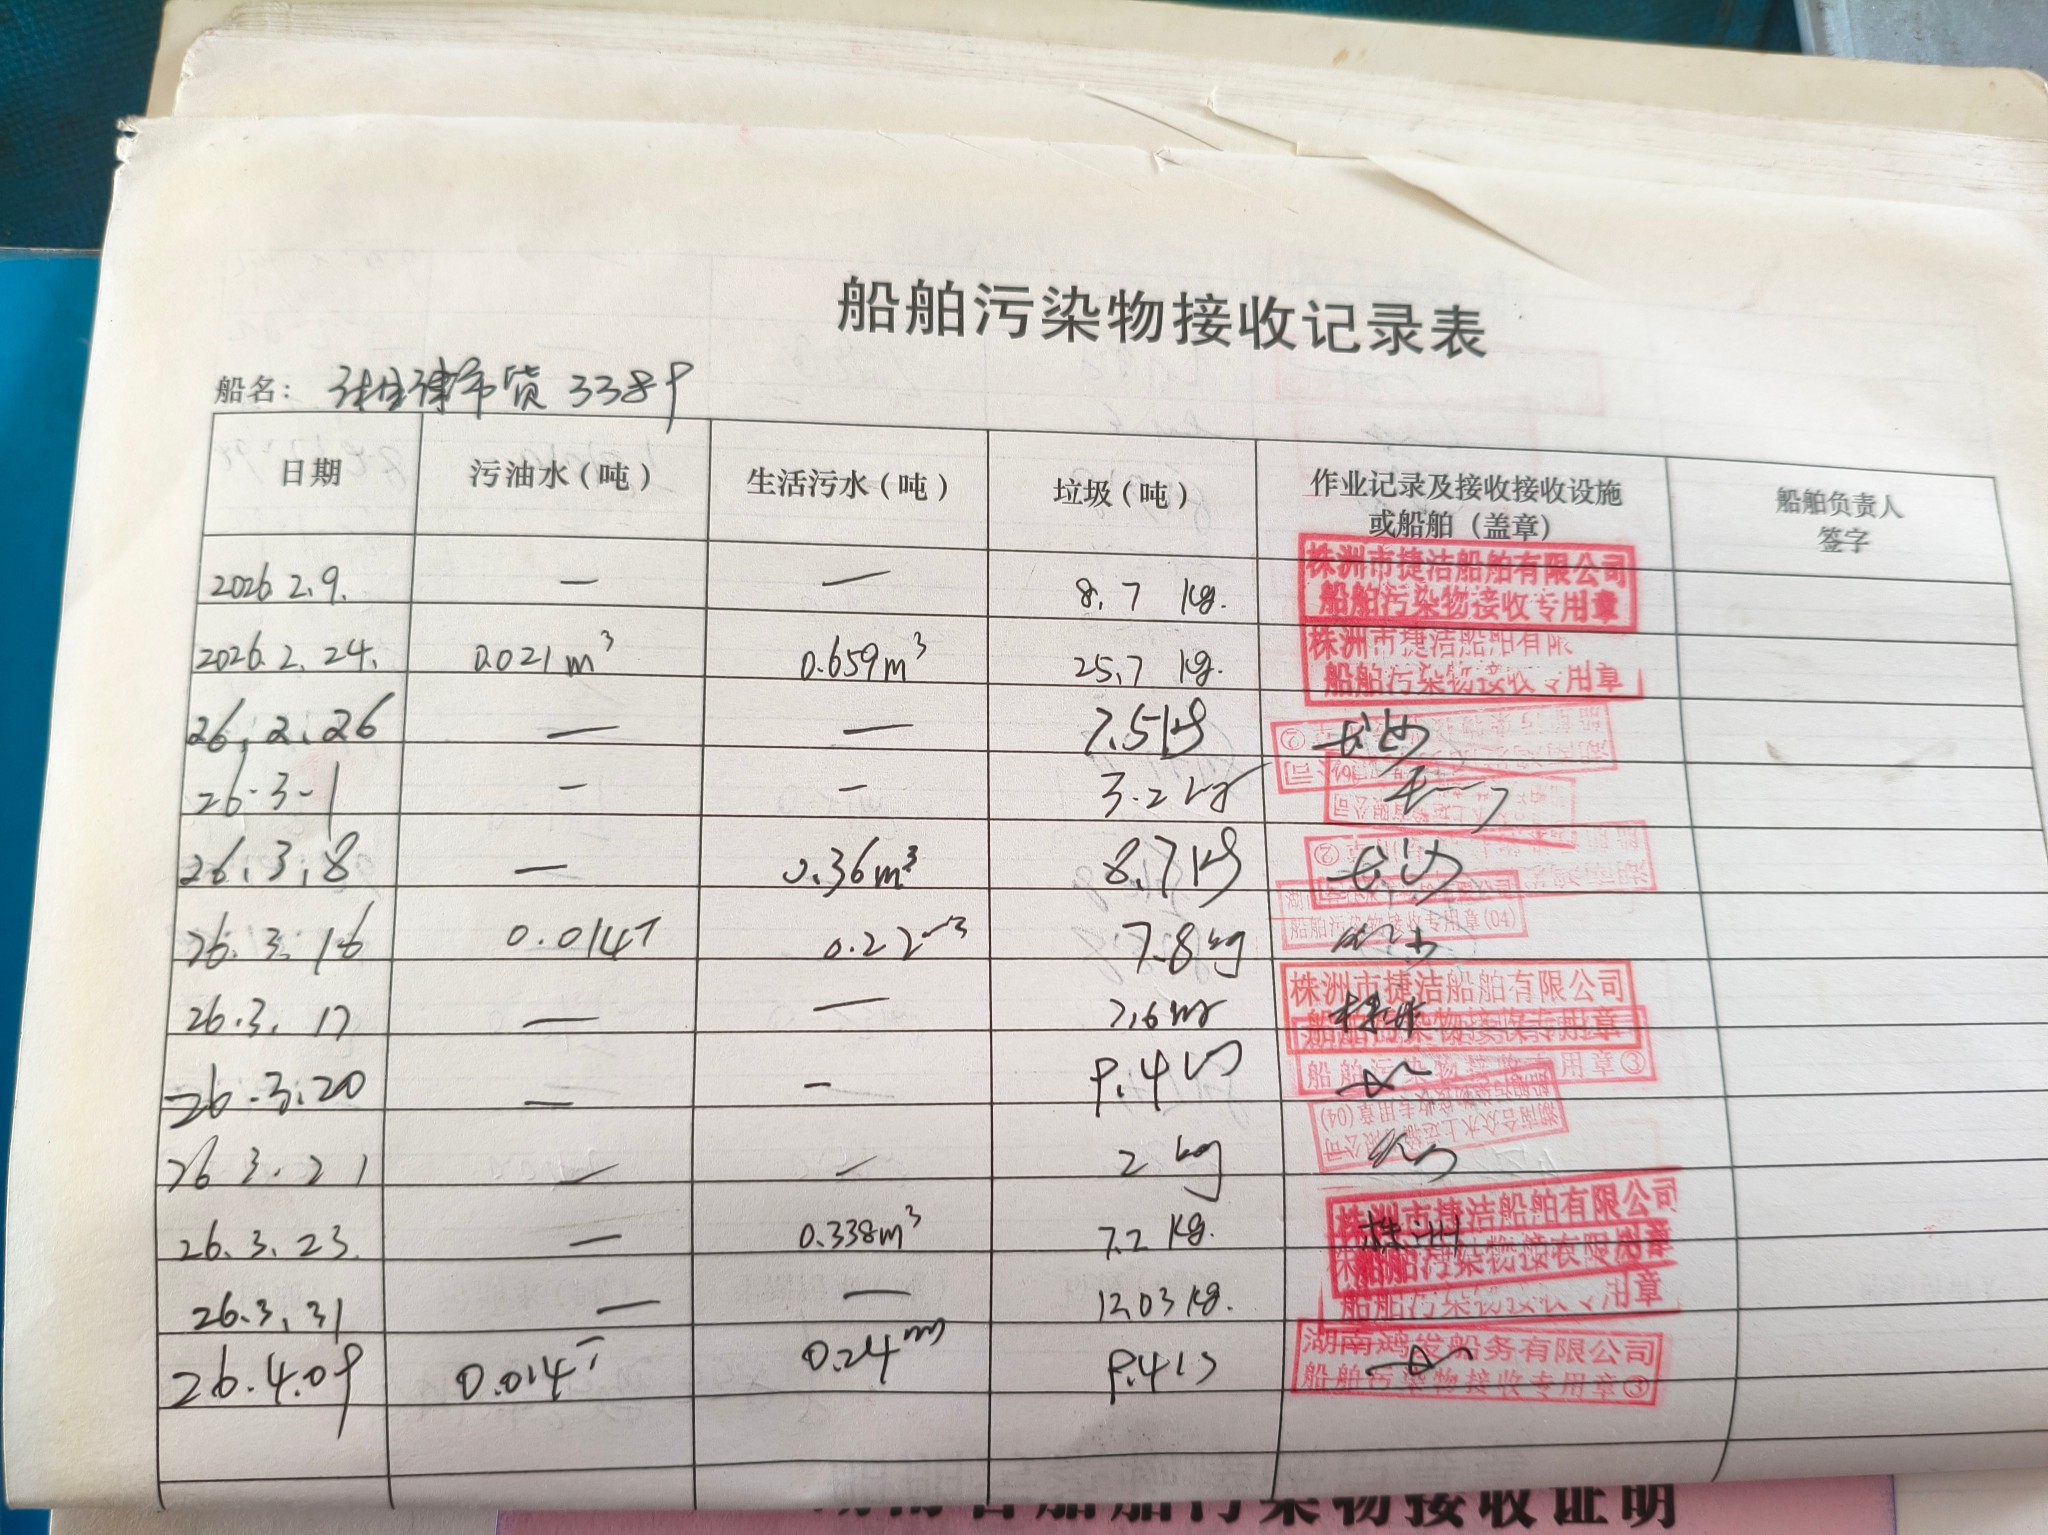 船舶污染物接收记录表
船名： 货 3389
日期 污油水（吨） 生活污水（吨） 垃圾（吨） 作业记录及接收接收设施或船舶（盖章） 船舶负责人签字
2026.2.9. — — 8.7 kg. 株洲市捷洁船舶有限公司 船舶污染物接收专用章
2026.2.24. 0.021m³ 0.659m³ 25.7 kg. 株洲市捷洁船舶有限 船舶污染物接收专用章
26.2.26 — — 7.5kg 长沙
26.3-1 — — 3.2kg
26.3.8 — 0.36m³ 8.7kg 长沙
26.3.16 0.014T 0.22m³ 7.8kg 船舶污染物接收专用章(04)
26.3.17 — — 7.6kg 株洲市捷洁船舶有限公司 船舶污染物接收专用章
26.3.20 — — 9.4kg 船舶污染物接收专用章③
26.3.21 — — 2kg 湖南合众水上运输有限公司 船舶污染物接收专用章(04)
26.3.23. — 0.338m³ 7.2kg. 株洲市捷洁船舶有限公司 株洲
26.3.31 — — 12.03kg. 船舶污染物接收专用章
26.4.09 0.014T 0.24m³ 9.4kg 湖南鸿发船务有限公司 船舶污染物接收专用章③
船舶污染物接收证明